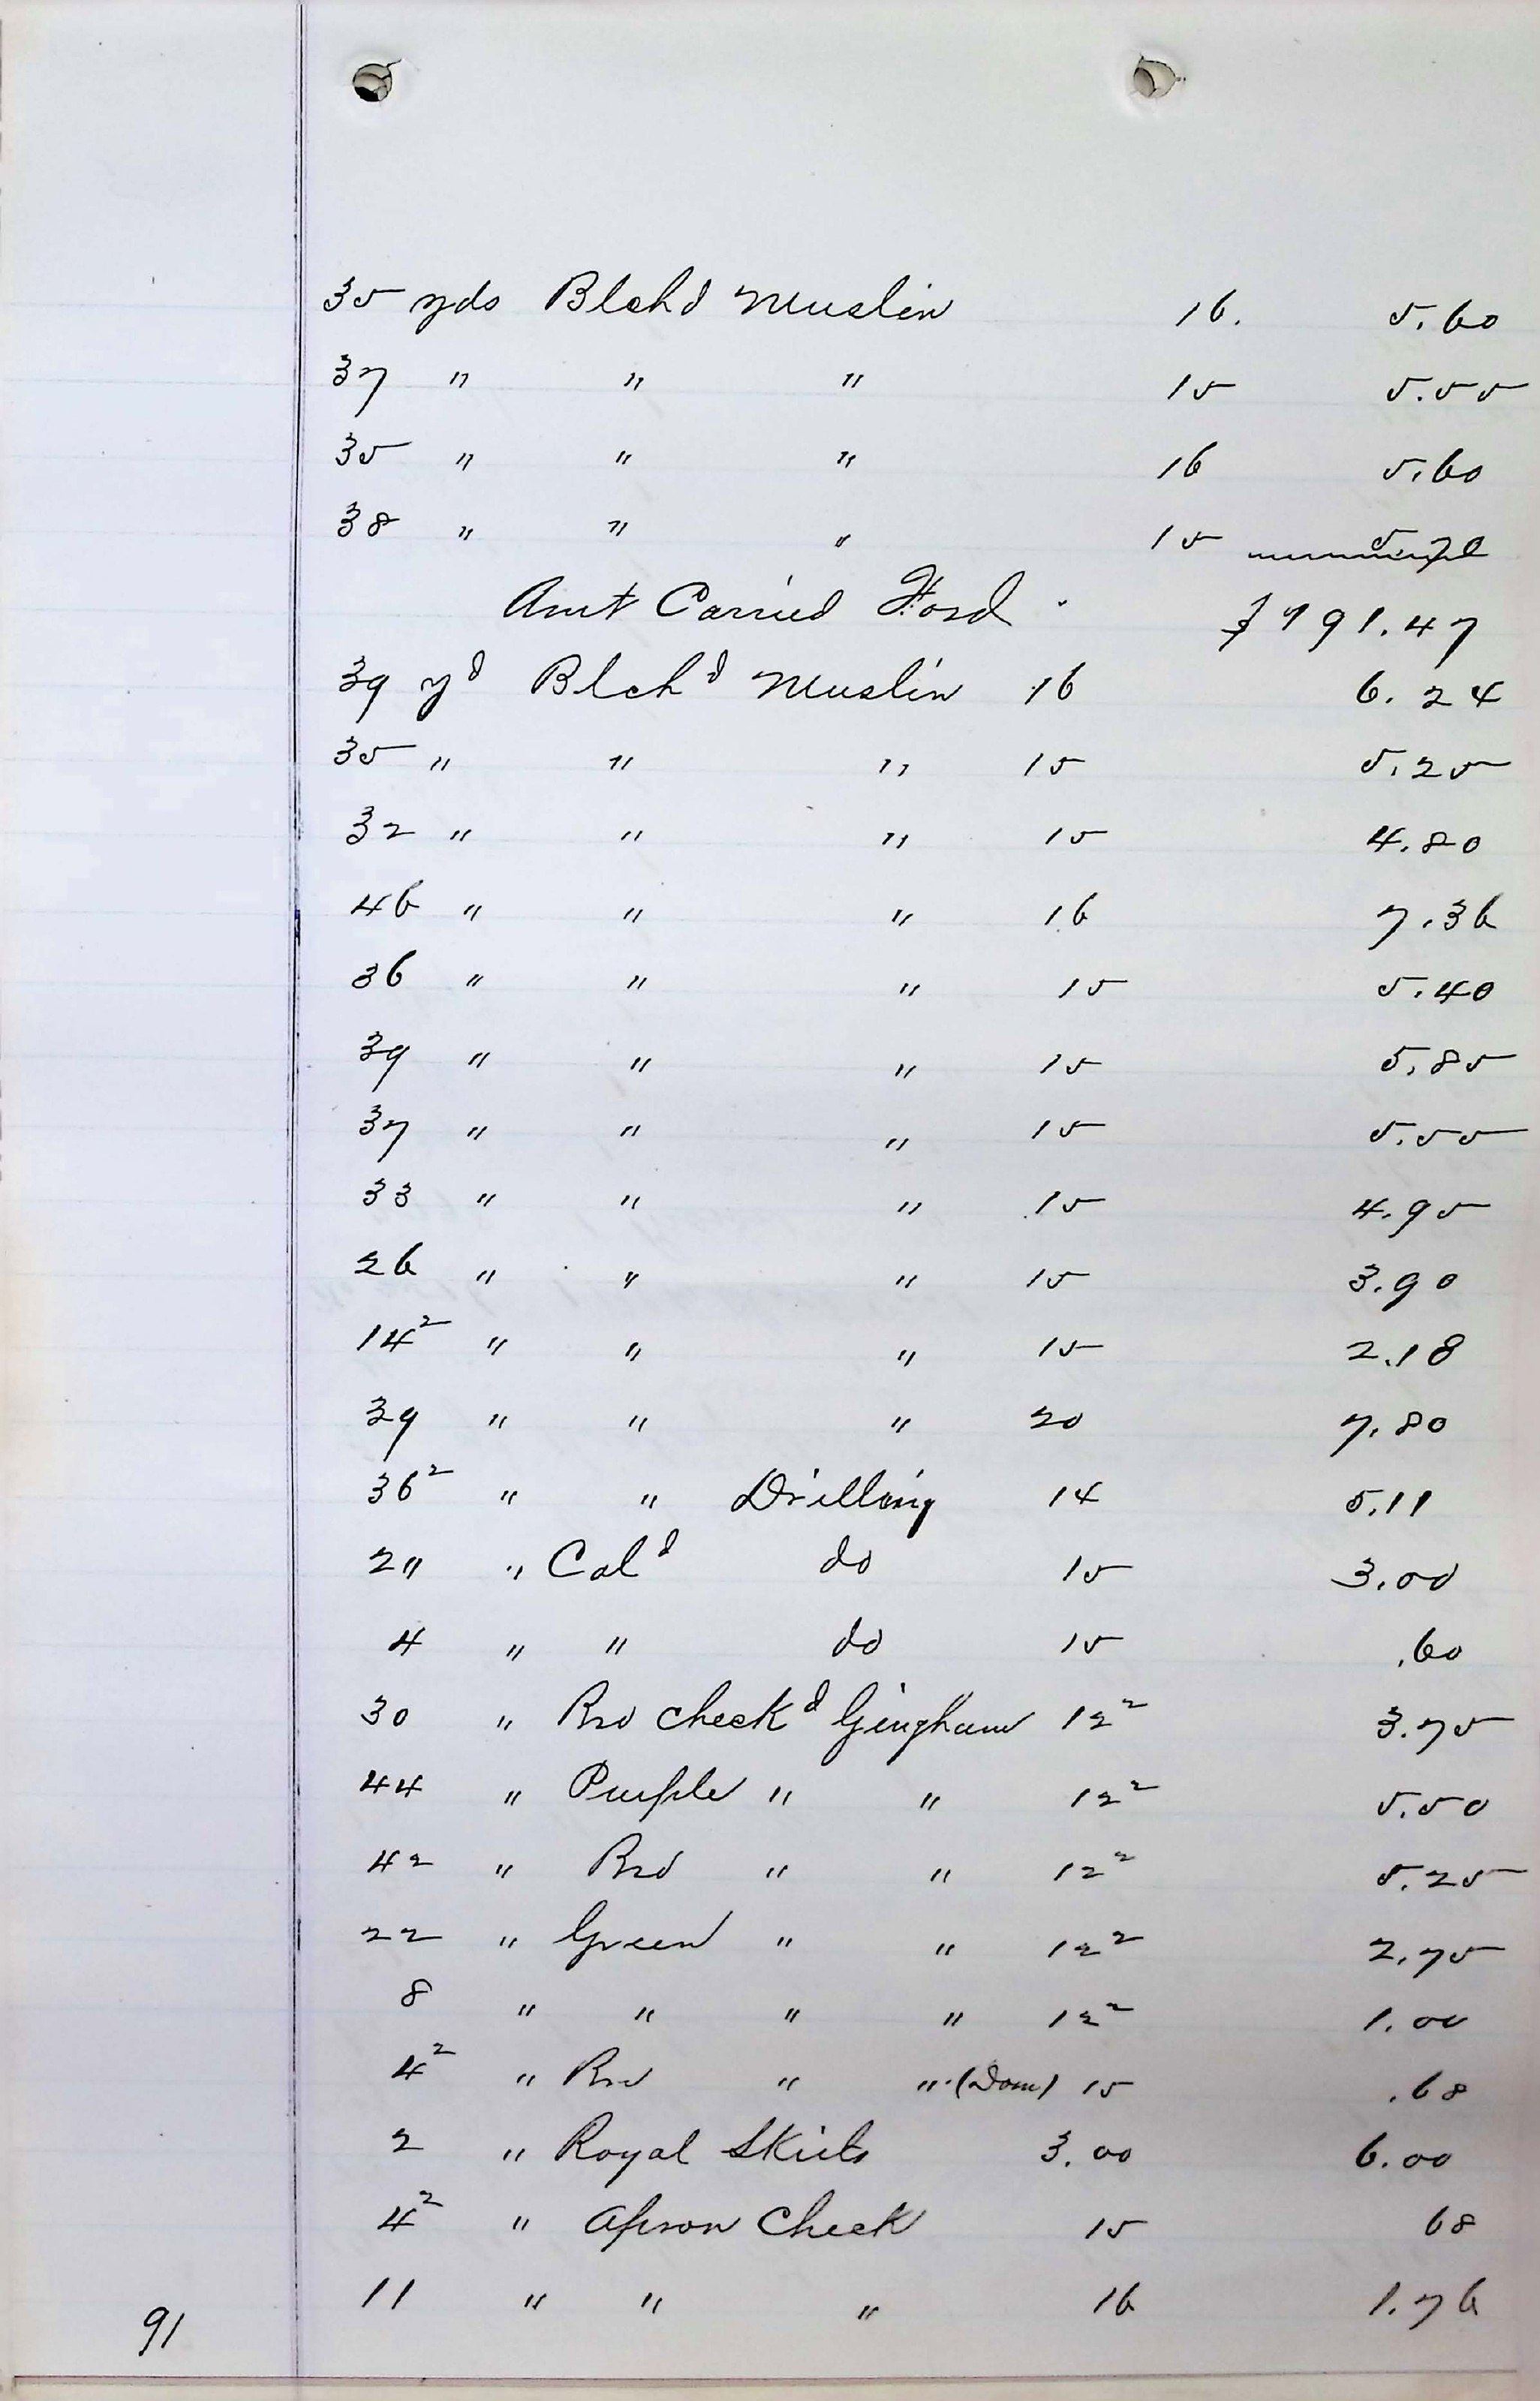 35 yds Blchd Muslin 16. 5.60
37 " " " 15 5.55
35 " " " 16 5.60
38 " " " 15 5.70
Amt Carried Ford $791.47
39 yd Blchd Muslin 16 6.24
35 " " " 15 5.25
32 " " " 15 4.80
46 " " " 16 7.36
36 " " " 15 5.40
39 " " " 15 5.85
37 " " " 15 5.55
33 " " " 15 4.95
26 " " " 15 3.90
14² " " " 15 2.18
39 " " " 20 7.80
36² " " Drilling 14 5.11
2" " Cold do 15 3.00
4 " " do 15 .60
30 " Bro checkd Gingham 12² 3.75
44 " Purple " " 12² 5.50
42 " Bro " " 12² 5.25
22 " Green " " 12² 2.75
8 " " " " 12² 1.00
4² " Bro " " (Dom) 15 .68
2 " Royal Skirts 3.00 6.00
4² " Apron Check 15 68
11 " " " 16 1.76
91